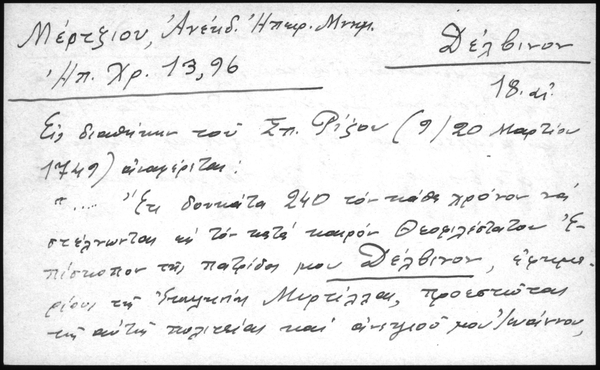 Μέρτζιου, Ἀνέκδ. Ἠπειρ. Μνημ.
Ἠπ. Χρ. 13, 96
Δέλβινον
18. αἰ.
Εἰς διαθήκην τοῦ Σπ. Ρίζου (9/20 Μαρτίου
1749) ἀναφέρεται:
".... Ἔτι δουκάτα 240 τὸν κάθε χρόνον νὰ
στέλνωνται εἰς τὸν κατὰ καιρόν Θεοφιλέστατον Ἐ-
πίσκοπον τῆς πατρίδος μου Δέλβινον, ἐφημε-
ρίους τῆς Μυρτίλλας, προεστῶτας
τῆς αὐτῆς πολιτείας καὶ ἀνεψιοῦ μου Ἰωάννου,